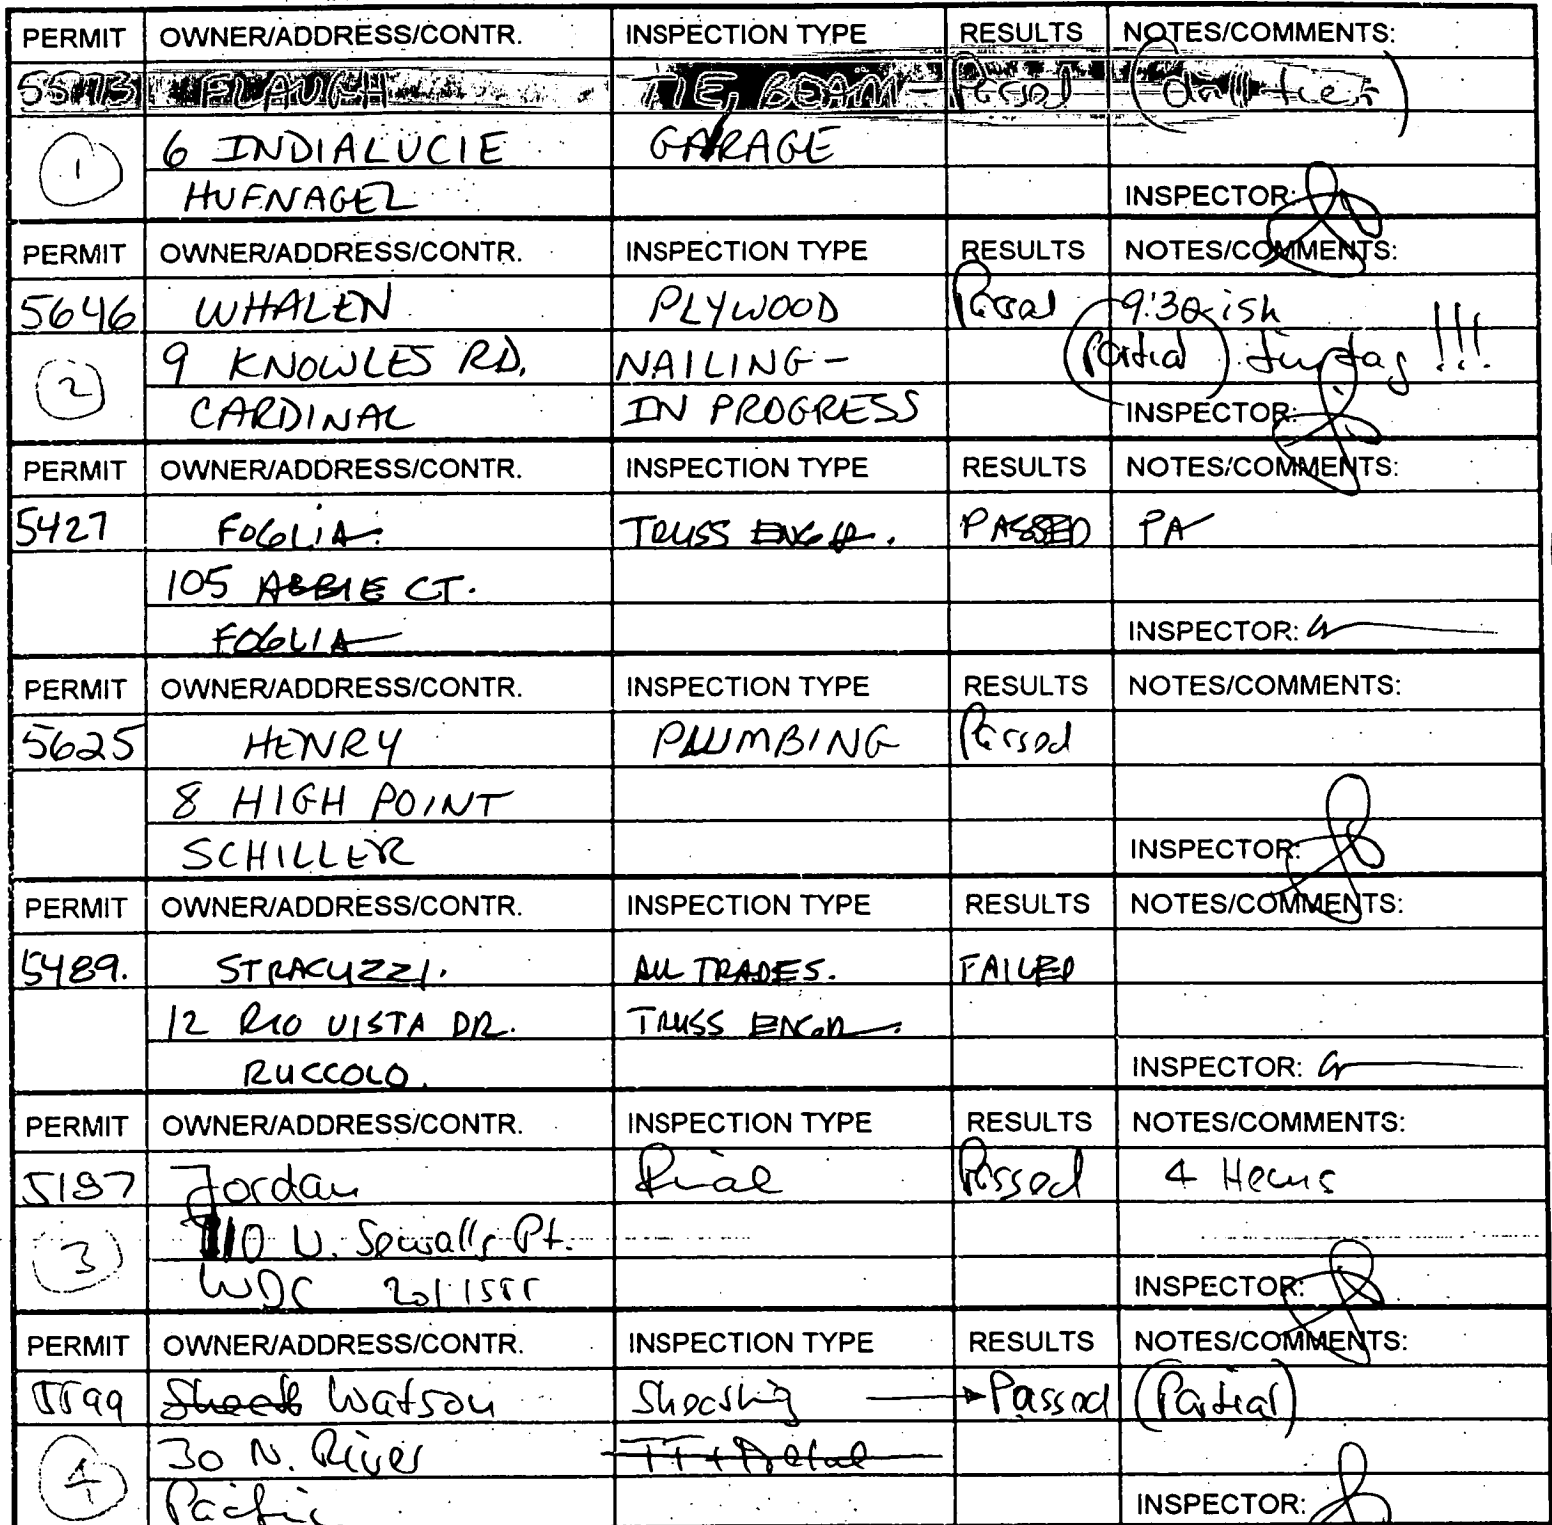 PERMIT OWNER/ADDRESS/CONTR. INSPECTION TYPE RESULTS NOTES/COMMENTS:
FLAUGH TIE BEAM - Passed
1 6 INDIALUCIE GARAGE
HUFNAGEL INSPECTOR:
PERMIT OWNER/ADDRESS/CONTR. INSPECTION TYPE RESULTS NOTES/COMMENTS:
5646 WHALEN PLYWOOD Passed 9:30ish
2 9 KNOWLES RD. NAILING - (Partial) !!!
CARDINAL IN PROGRESS INSPECTOR:
PERMIT OWNER/ADDRESS/CONTR. INSPECTION TYPE RESULTS NOTES/COMMENTS:
5427 FOGLIA TRUSS ENGR. PASSED PA
105 ABBIE CT.
FOGLIA INSPECTOR:
PERMIT OWNER/ADDRESS/CONTR. INSPECTION TYPE RESULTS NOTES/COMMENTS:
5625 HENRY PLUMBING Passed
8 HIGH POINT
SCHILLER INSPECTOR:
PERMIT OWNER/ADDRESS/CONTR. INSPECTION TYPE RESULTS NOTES/COMMENTS:
5489. STRACUZZI. ALL TRADES. FAILED
12 RIO VISTA DR. TRUSS ENGR.
RUCCOLO. INSPECTOR:
PERMIT OWNER/ADDRESS/CONTR. INSPECTION TYPE RESULTS NOTES/COMMENTS:
5197 Jordan Final Passed 4 
3 110 N. Sewalls Pt.
WDC INSPECTOR:
PERMIT OWNER/ADDRESS/CONTR. INSPECTION TYPE RESULTS NOTES/COMMENTS:
5599 Watson Passed (Partial)
4 30 N. River
Pacific INSPECTOR: